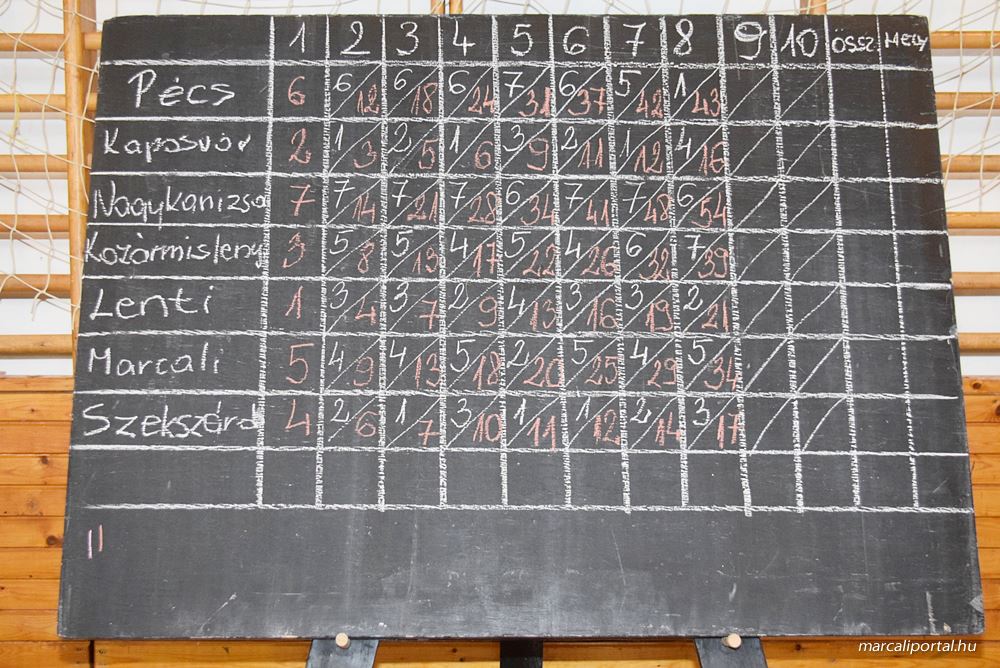 1 2 3 4 5 6 7 8 9 10 össz: Hely
Pécs 6 6/12 6/18 6/24 7/31 6/37 5/42 1/43
Kaposvár 2 1/3 2/5 1/6 3/9 2/11 1/12 4/16
Nagykanizsa 7 7/14 7/21 7/28 6/34 7/41 7/48 6/54
Kozármisleny 3 5/8 5/13 4/17 5/22 4/26 6/32 7/39
Lenti 1 3/4 3/7 2/9 4/13 3/16 3/19 2/21
Marcali 5 4/9 4/13 5/18 2/20 5/25 4/29 5/34
Szekszárd 4 2/6 1/7 3/10 1/11 1/12 2/14 3/17
marcaliportal.hu